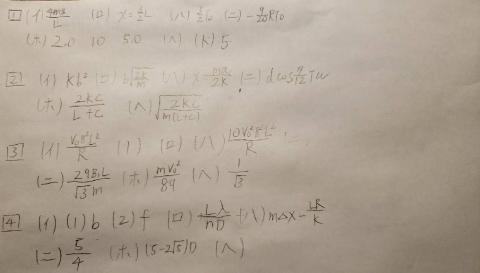 [1] (イ) 4mg/L (ロ) x=1/2L (ハ) (ニ) -9/20 RT₀
(ホ) 2.0 10 5.0 (ヘ) (k) 5
[2] (イ) kb² (ロ) b√(2k/m) (ハ) (ニ) d cos 9/12 πω
(ホ) 2kC/(L+C) (ヘ) √(2kC/m(L+C))
[3] (イ) V₀B²L²/R (1) (ロ) (ハ) 10V₀²B²L²/R
(ニ) 2qB₁L/√3m (ホ) mV₀²/84 (ヘ) 1/√3
[4] (イ) (1) b (2) f (ロ) Lλ/nD (ハ) mΔx - LR/k
(ニ) 5/4 (ホ) (5-2√5)D (ヘ)